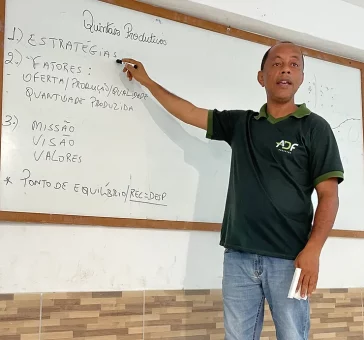 Quintais Produtivos
1) ESTRATÉGIAS
2) FATORES:
- OFERTA/PRODUÇÃO/QUALIDADE
QUANTIDADE PRODUZIDA
3) MISSÃO
VISÃO
VALORES
* PONTO DE EQUILÍBRIO/REC=DESP
ADF